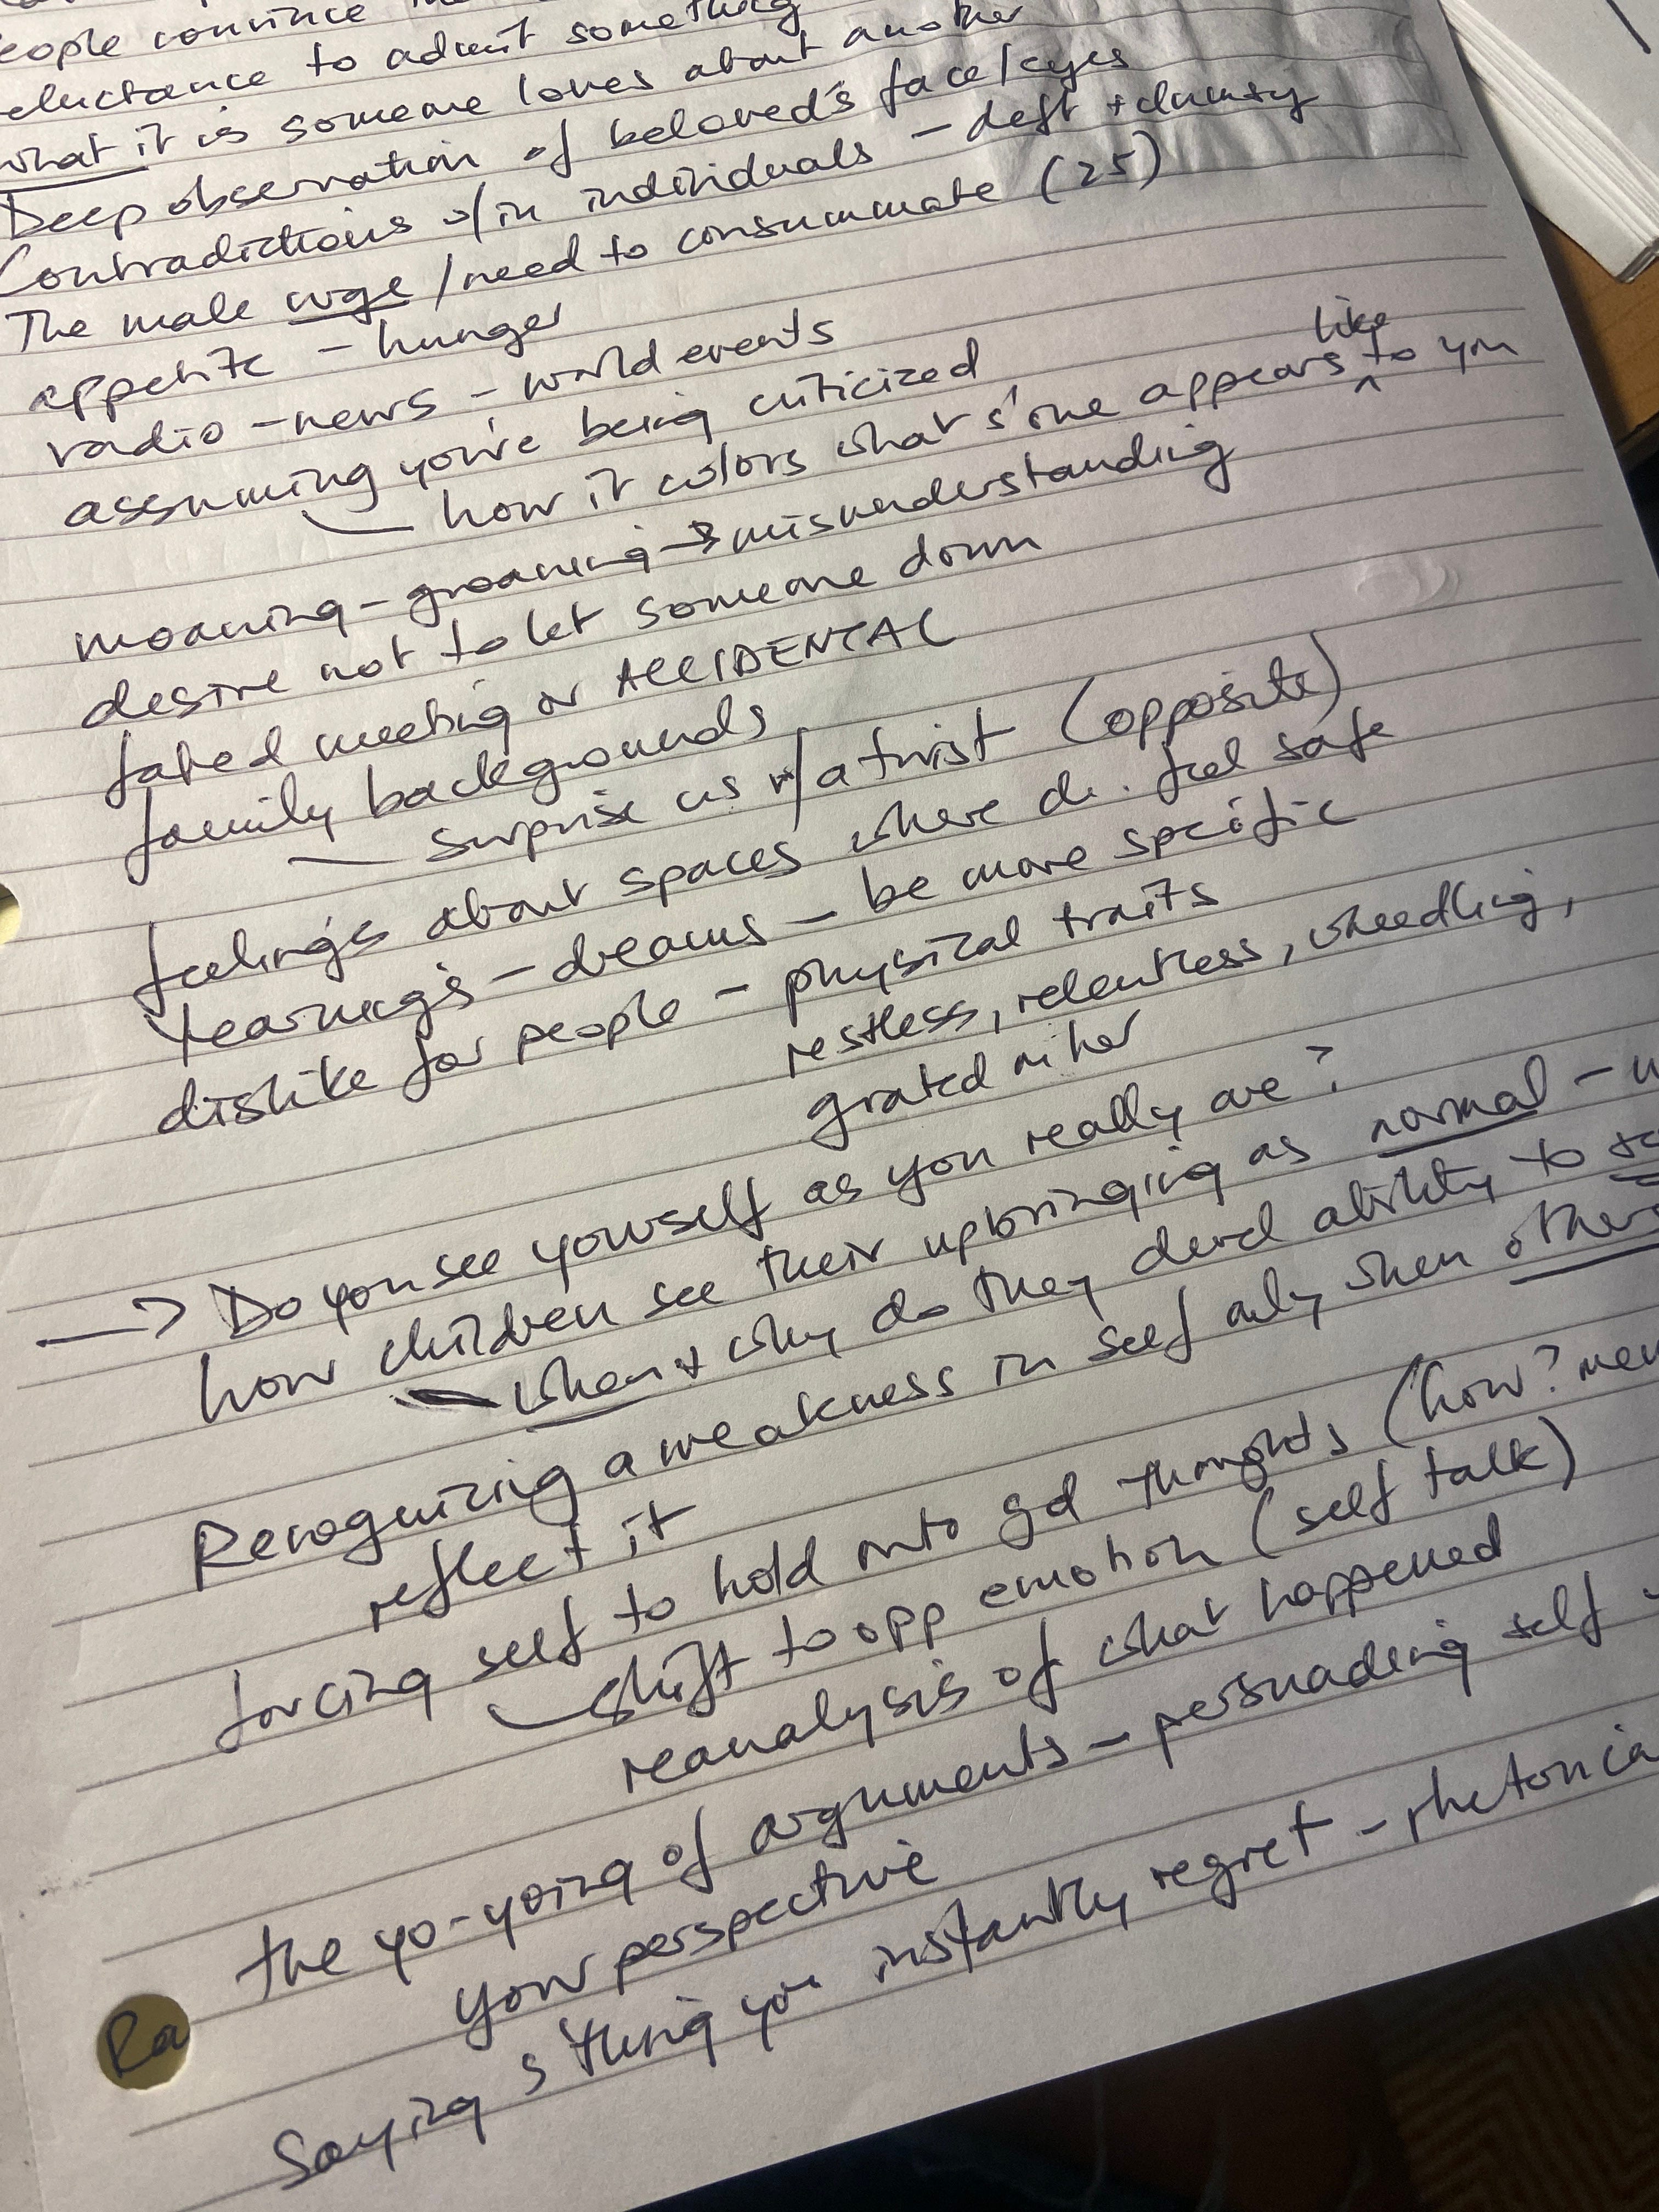 people convince
reluctance to admit something
what it is someone loves about another
Deep observation of beloved's face/eyes
Contradictions w/in individuals – deft + clumsy
The male urge / need to consummate (25)
appetite – hunger
radio – news – world events
assuming you're being criticized
how it colors what s'one appears like to you
moaning – groaning → misunderstanding
desire not to let someone down
fated meeting or ACCIDENTAL
family backgrounds
– surprise us w/ a twist (opposite)
feelings about spaces where ch. feel safe
Yearnings – dreams – be more specific
dislike for people – physical traits
restless, relentless, wheedling,
grated on her
→ Do you see yourself as you really are?
how children see their upbringing as normal –
– when + why do they devel ability to
Recognizing a weakness in self only when others
reflect it
forcing self to hold onto gd thoughts (how?
shift to opp emotion (self talk)
reanalysis of what happened
the yo-yoing of arguments – persuading self
your perspective
Saying s'thing you instantly regret –
Ra